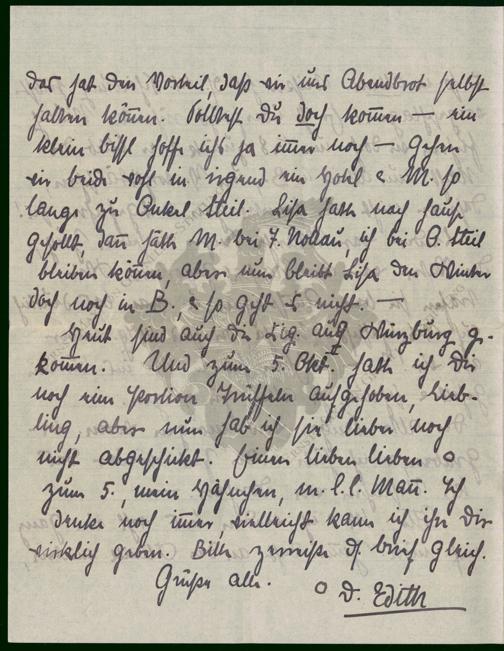 das hat den Vorteil, daß wir uns Abendbrot selbst
halten können. Solltest Du doch kommen — ein
klein bissl hoff ichs ja immer noch — gehen
wir beide wohl in irgend ein Hotel & M. so
lange zu Onkel Steil. Lisa hatte nach Hause
gesollt dann hätte M. bei F. , ich bei O. Steil
bleiben können, aber nun bleibt Lisa den Winter
doch noch in B., & so geht es nicht. —
Heut sind auch die Zig. aus Würzburg ge-
kommen. Und zum 5. Okt. hatte ich Dir
noch eine Portion Trüffeln aufgehoben, Lieb-
ling, aber nun hab ich sie lieber noch
nicht abgeschickt. Einen lieben lieben o
zum 5., mein Hähnchen, m. l. l. Mann. Ich
denke noch immer, vielleicht kann ich ihn Dir
wirklich geben. Bitte zerreiße d. brief gleich.
Grüße alle. o D. Edith